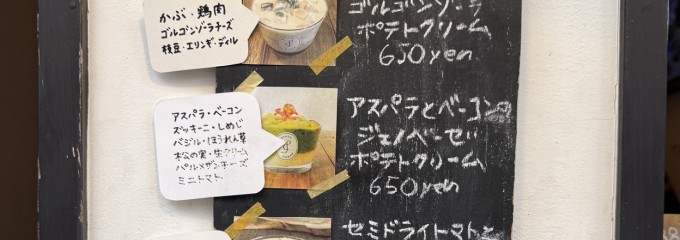 かぶ・鶏肉
ゴルゴンゾーラチーズ
枝豆・エリンギ・ディル
ゴルゴンゾーラ
ポテトクリーム
650yen
アスパラ・ベーコン
ズッキーニ・しめじ
バジル・ほうれん草
松の実・生クリーム
パルメザンチーズ
ミニトマト
アスパラとベーコンの
ジェノベーゼ
ポテトクリーム
650yen
セミドライトマトと